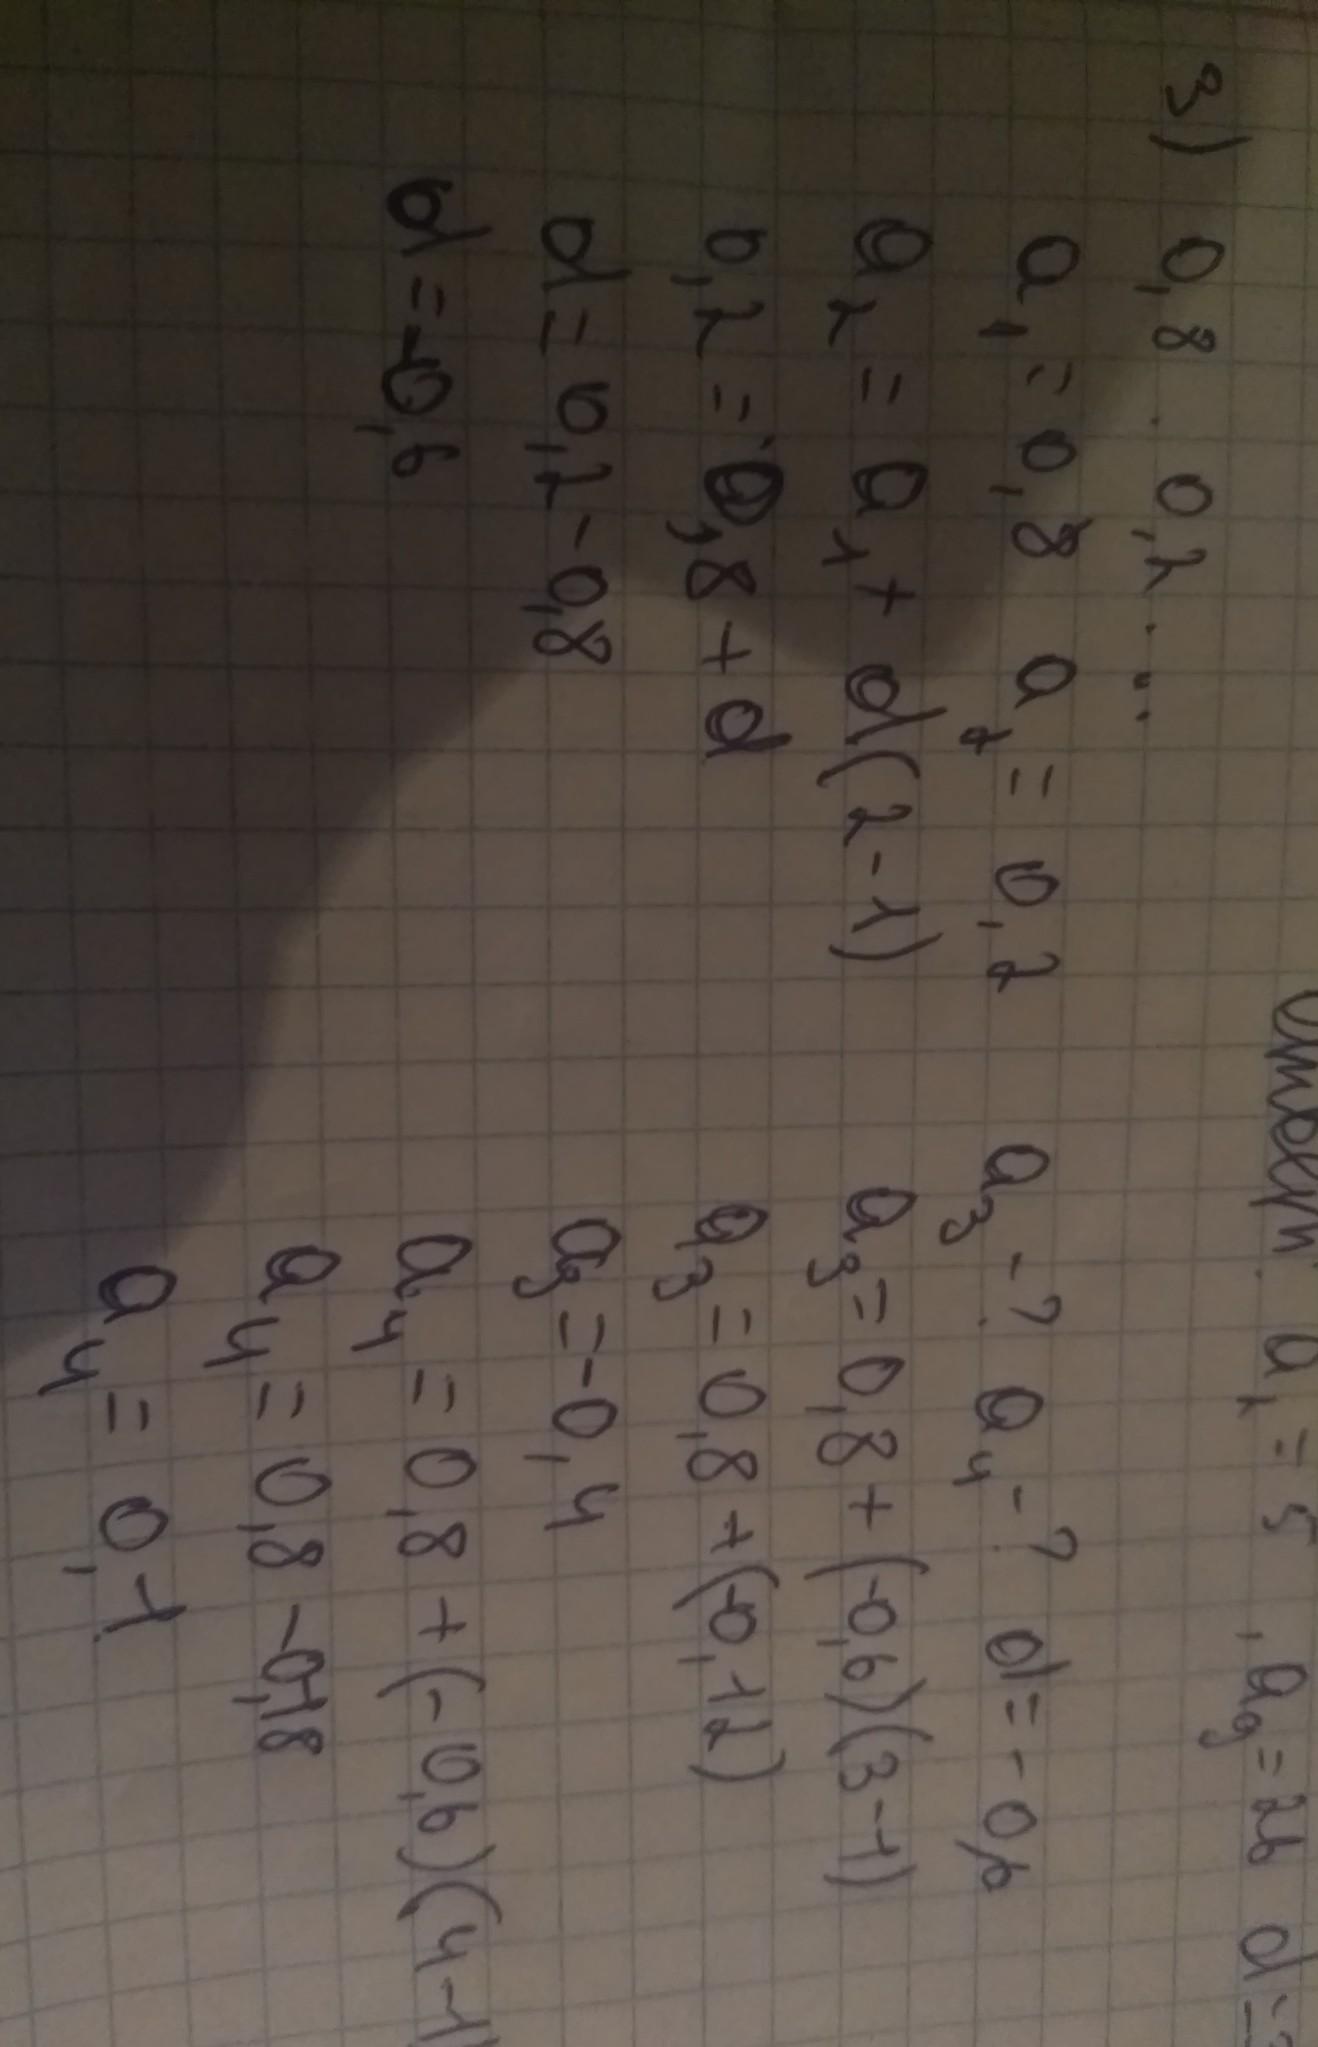 Ответ: a₁ = 5, a₉ = 26 d =
3) 0,8. 0,2. ...
a₁ = 0,8 a₂ = 0,2
a₂ = a₁ + d(2-1)
0,2 = 0,8 + d
d = 0,2 - 0,8
d = -0,6
a₃ - ? a₄ - ? d = -0,6
a₃ = 0,8 + (-0,6)(3-1)
a₃ = 0,8 + (-0,12)
a₃ = -0,4
a₄ = 0,8 + (-0,6)(4-1)
a₄ = 0,8 - 0,18
a₄ = 0,1